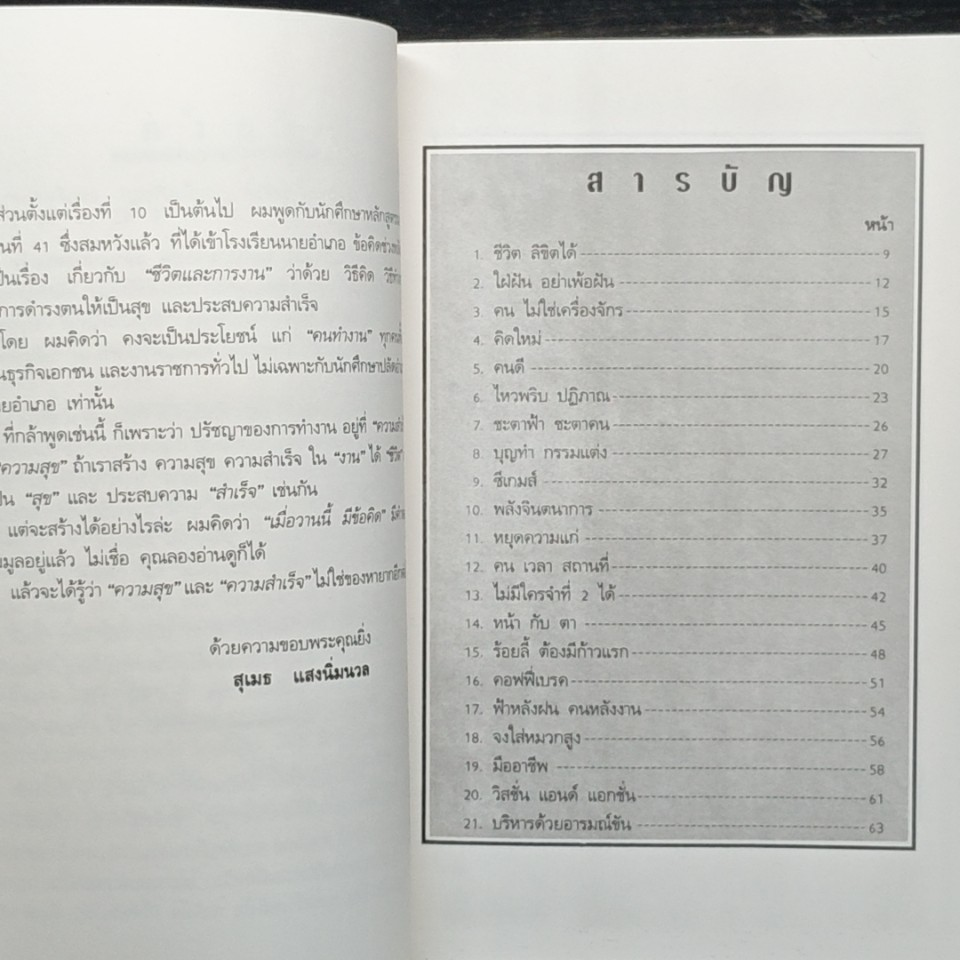 ส่วนตั้งแต่เรื่องที่ 10 เป็นต้นไป ผมพูดกับนักศึกษา
ที่ 41 ซึ่งสมหวังแล้ว ที่ได้เข้าโรงเรียนนายอำเภอ
เรื่อง เกี่ยวกับ "ชีวิตและการงาน" ว่าด้วย วิธีคิด
การดำรงตนให้เป็นสุข และประสบความสำเร็จ
โดย ผมคิดว่า คงจะเป็นประโยชน์ แก่ "คนทำงาน"
ธุรกิจเอกชน และงานราชการทั่วไป ไม่เฉพาะกับนักศึกษา
อำเภอ เท่านั้น
ที่กล้าพูดเช่นนี้ ก็เพราะว่า ปรัชญาของการทำงาน อยู่ที่
"ความสุข" ถ้าเราสร้าง ความสุข ความสำเร็จ ใน "งาน" ได้
"สุข" และ ประสบความ "สำเร็จ" เช่นกัน
แต่จะสร้างได้อย่างไรล่ะ ผมคิดว่า "เมื่อวานนี้ มีข้อคิด"
มูลอยู่แล้ว ไม่เชื่อ คุณลองอ่านดูก็ได้
แล้วจะได้รู้ว่า "ความสุข" และ "ความสำเร็จ" ไม่ใช่ของหายาก
ด้วยความขอบพระคุณยิ่ง
สุเมธ แสงนิ่มนวล
สารบัญ
หน้า
1. ชีวิต ลิขิตได้ 9
2. ใฝ่ฝัน อย่าเพ้อฝัน 12
3. คน ไม่ใช่เครื่องจักร 15
4. คิดใหม่ 17
5. คนดี 20
6. ไหวพริบ ปฏิภาณ 23
7. ชะตาฟ้า ชะตาคน 26
8. บุญทำ กรรมแต่ง 27
9. ซีเกมส์ 32
10. พลังจินตนาการ 35
11. หยุดความแก่ 37
12. คน เวลา สถานที่ 40
13. ไม่มีใครจำที่ 2 ได้ 42
14. หน้า กับ ตา 45
15. ร้อยลี้ ต้องมีก้าวแรก 48
16. คอฟฟี่เบรค 51
17. ฟ้าหลังฝน คนหลังงาน 54
18. จงใส่หมวกสูง 56
19. มืออาชีพ 58
20. วิสชั่น แอนด์ แอกชั่น 61
21. บริหารด้วยอารมณ์ขัน 63